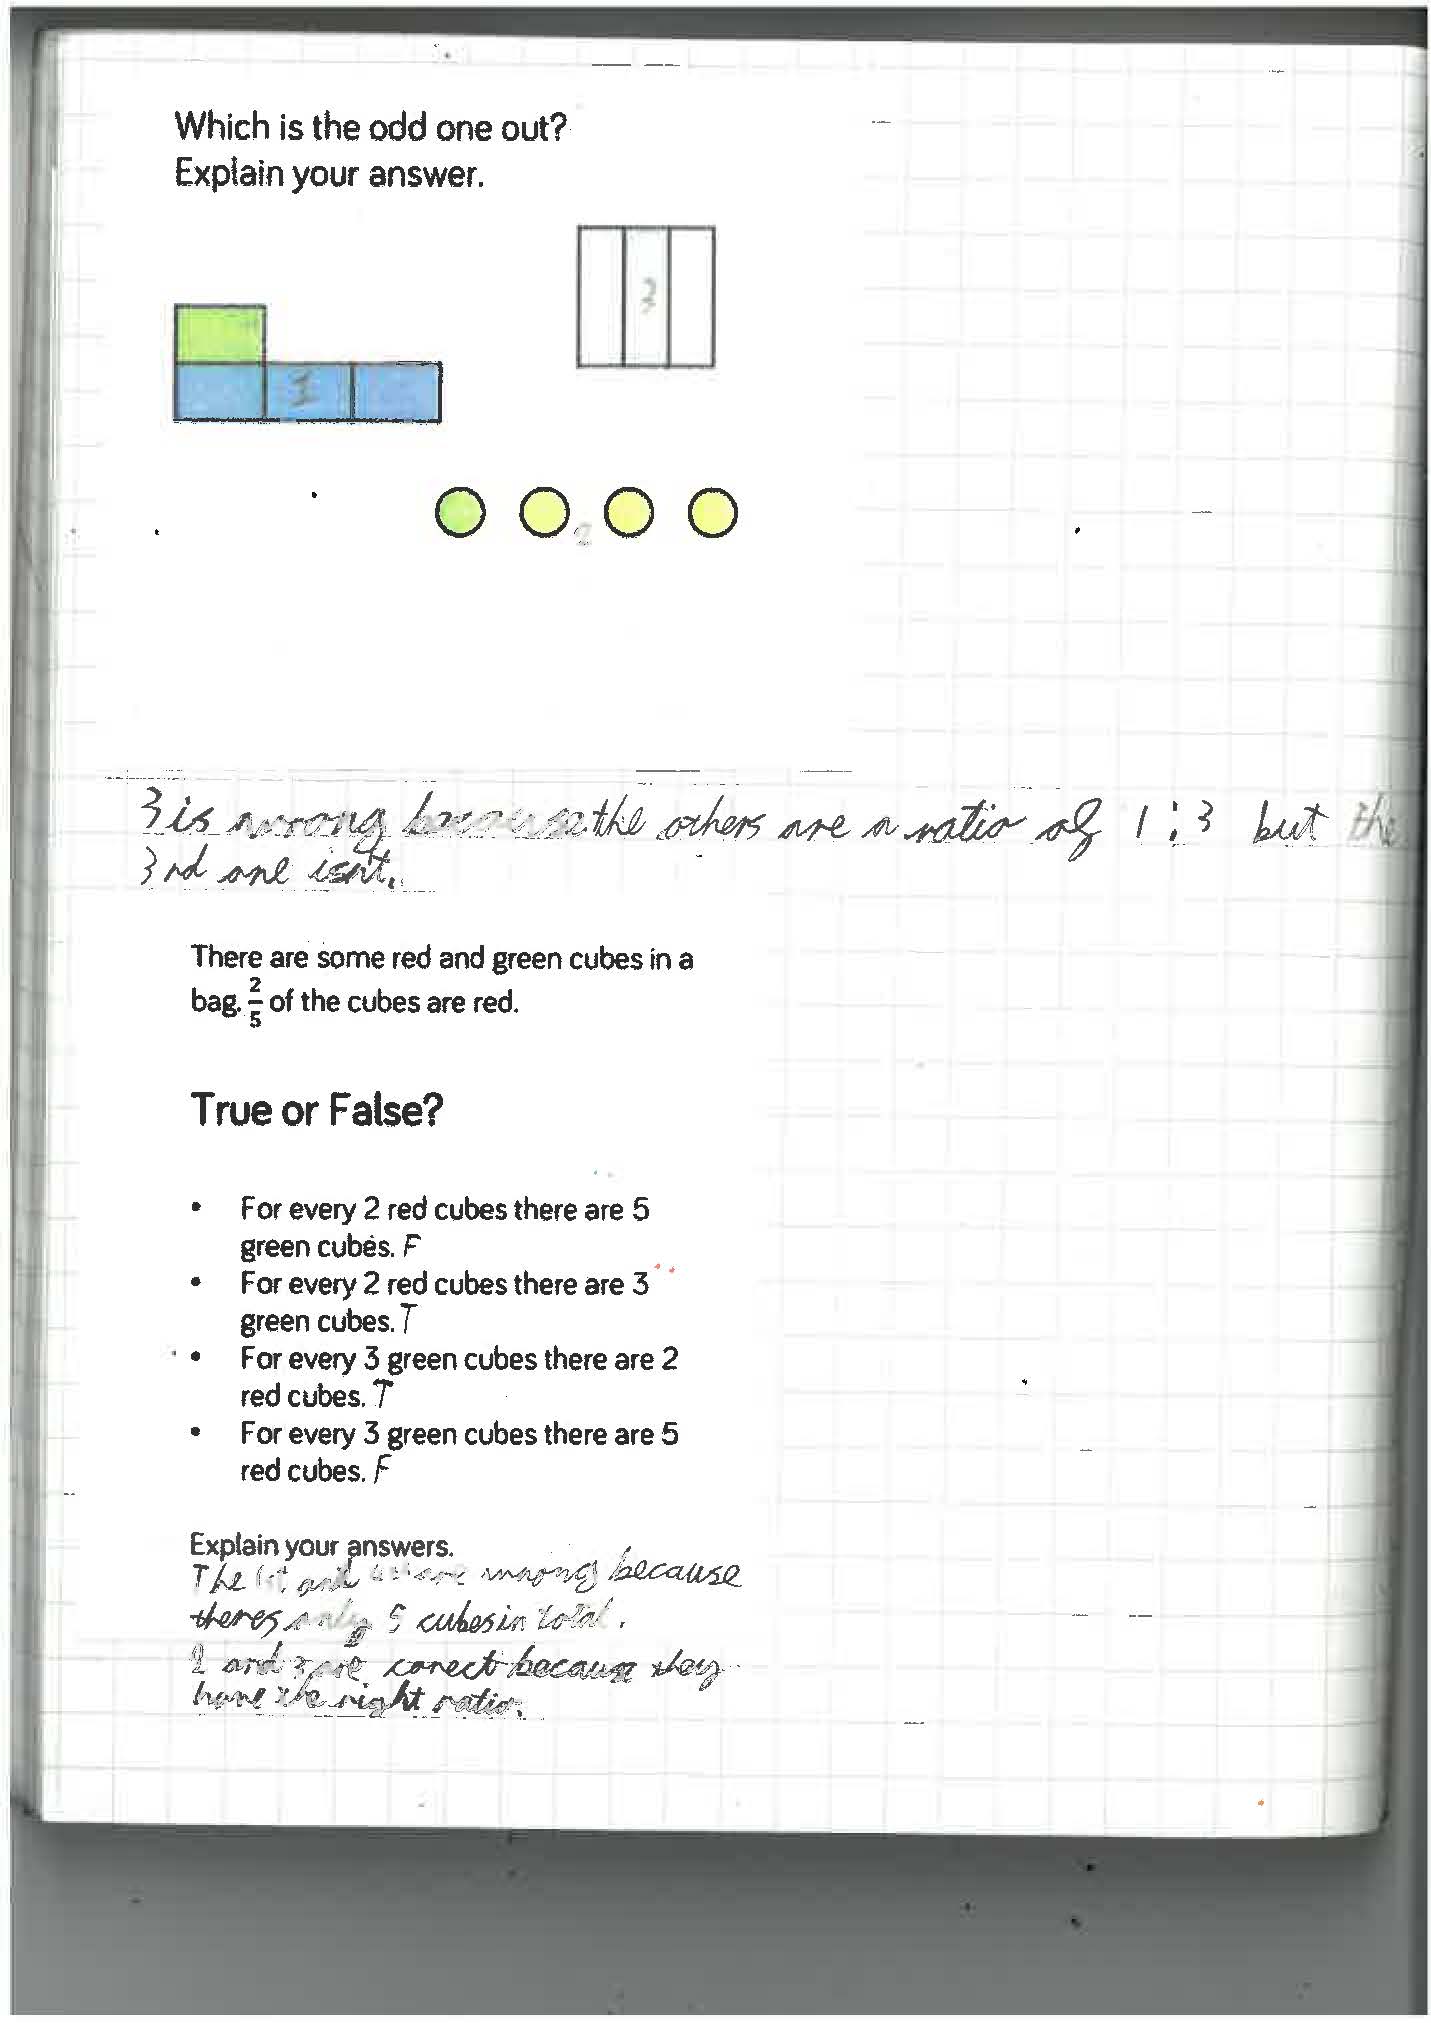 Which is the odd one out?
Explain your answer.
3
1
2
3 is wrong because the others are a ratio of 1:3 but the
3rd one isnt.
There are some red and green cubes in a
bag. 2/5 of the cubes are red.
True or False?
• For every 2 red cubes there are 5
green cubes. F
• For every 2 red cubes there are 3
green cubes. T
• For every 3 green cubes there are 2
red cubes. T
• For every 3 green cubes there are 5
red cubes. F
Explain your answers.
The 1st and are wrong because
theres only 5 cubes in total.
2 and 3 are corect because they
have the right ratio.